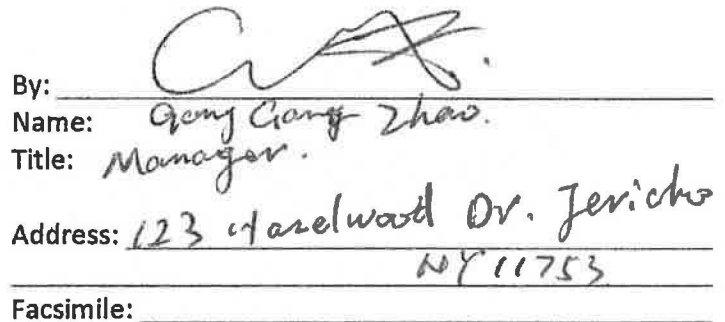 By:
Name: Gang Gang Zhao.
Title: Manager.
Address: 123 Hazelwood Dr. Jericho
NY 11753
Facsimile: